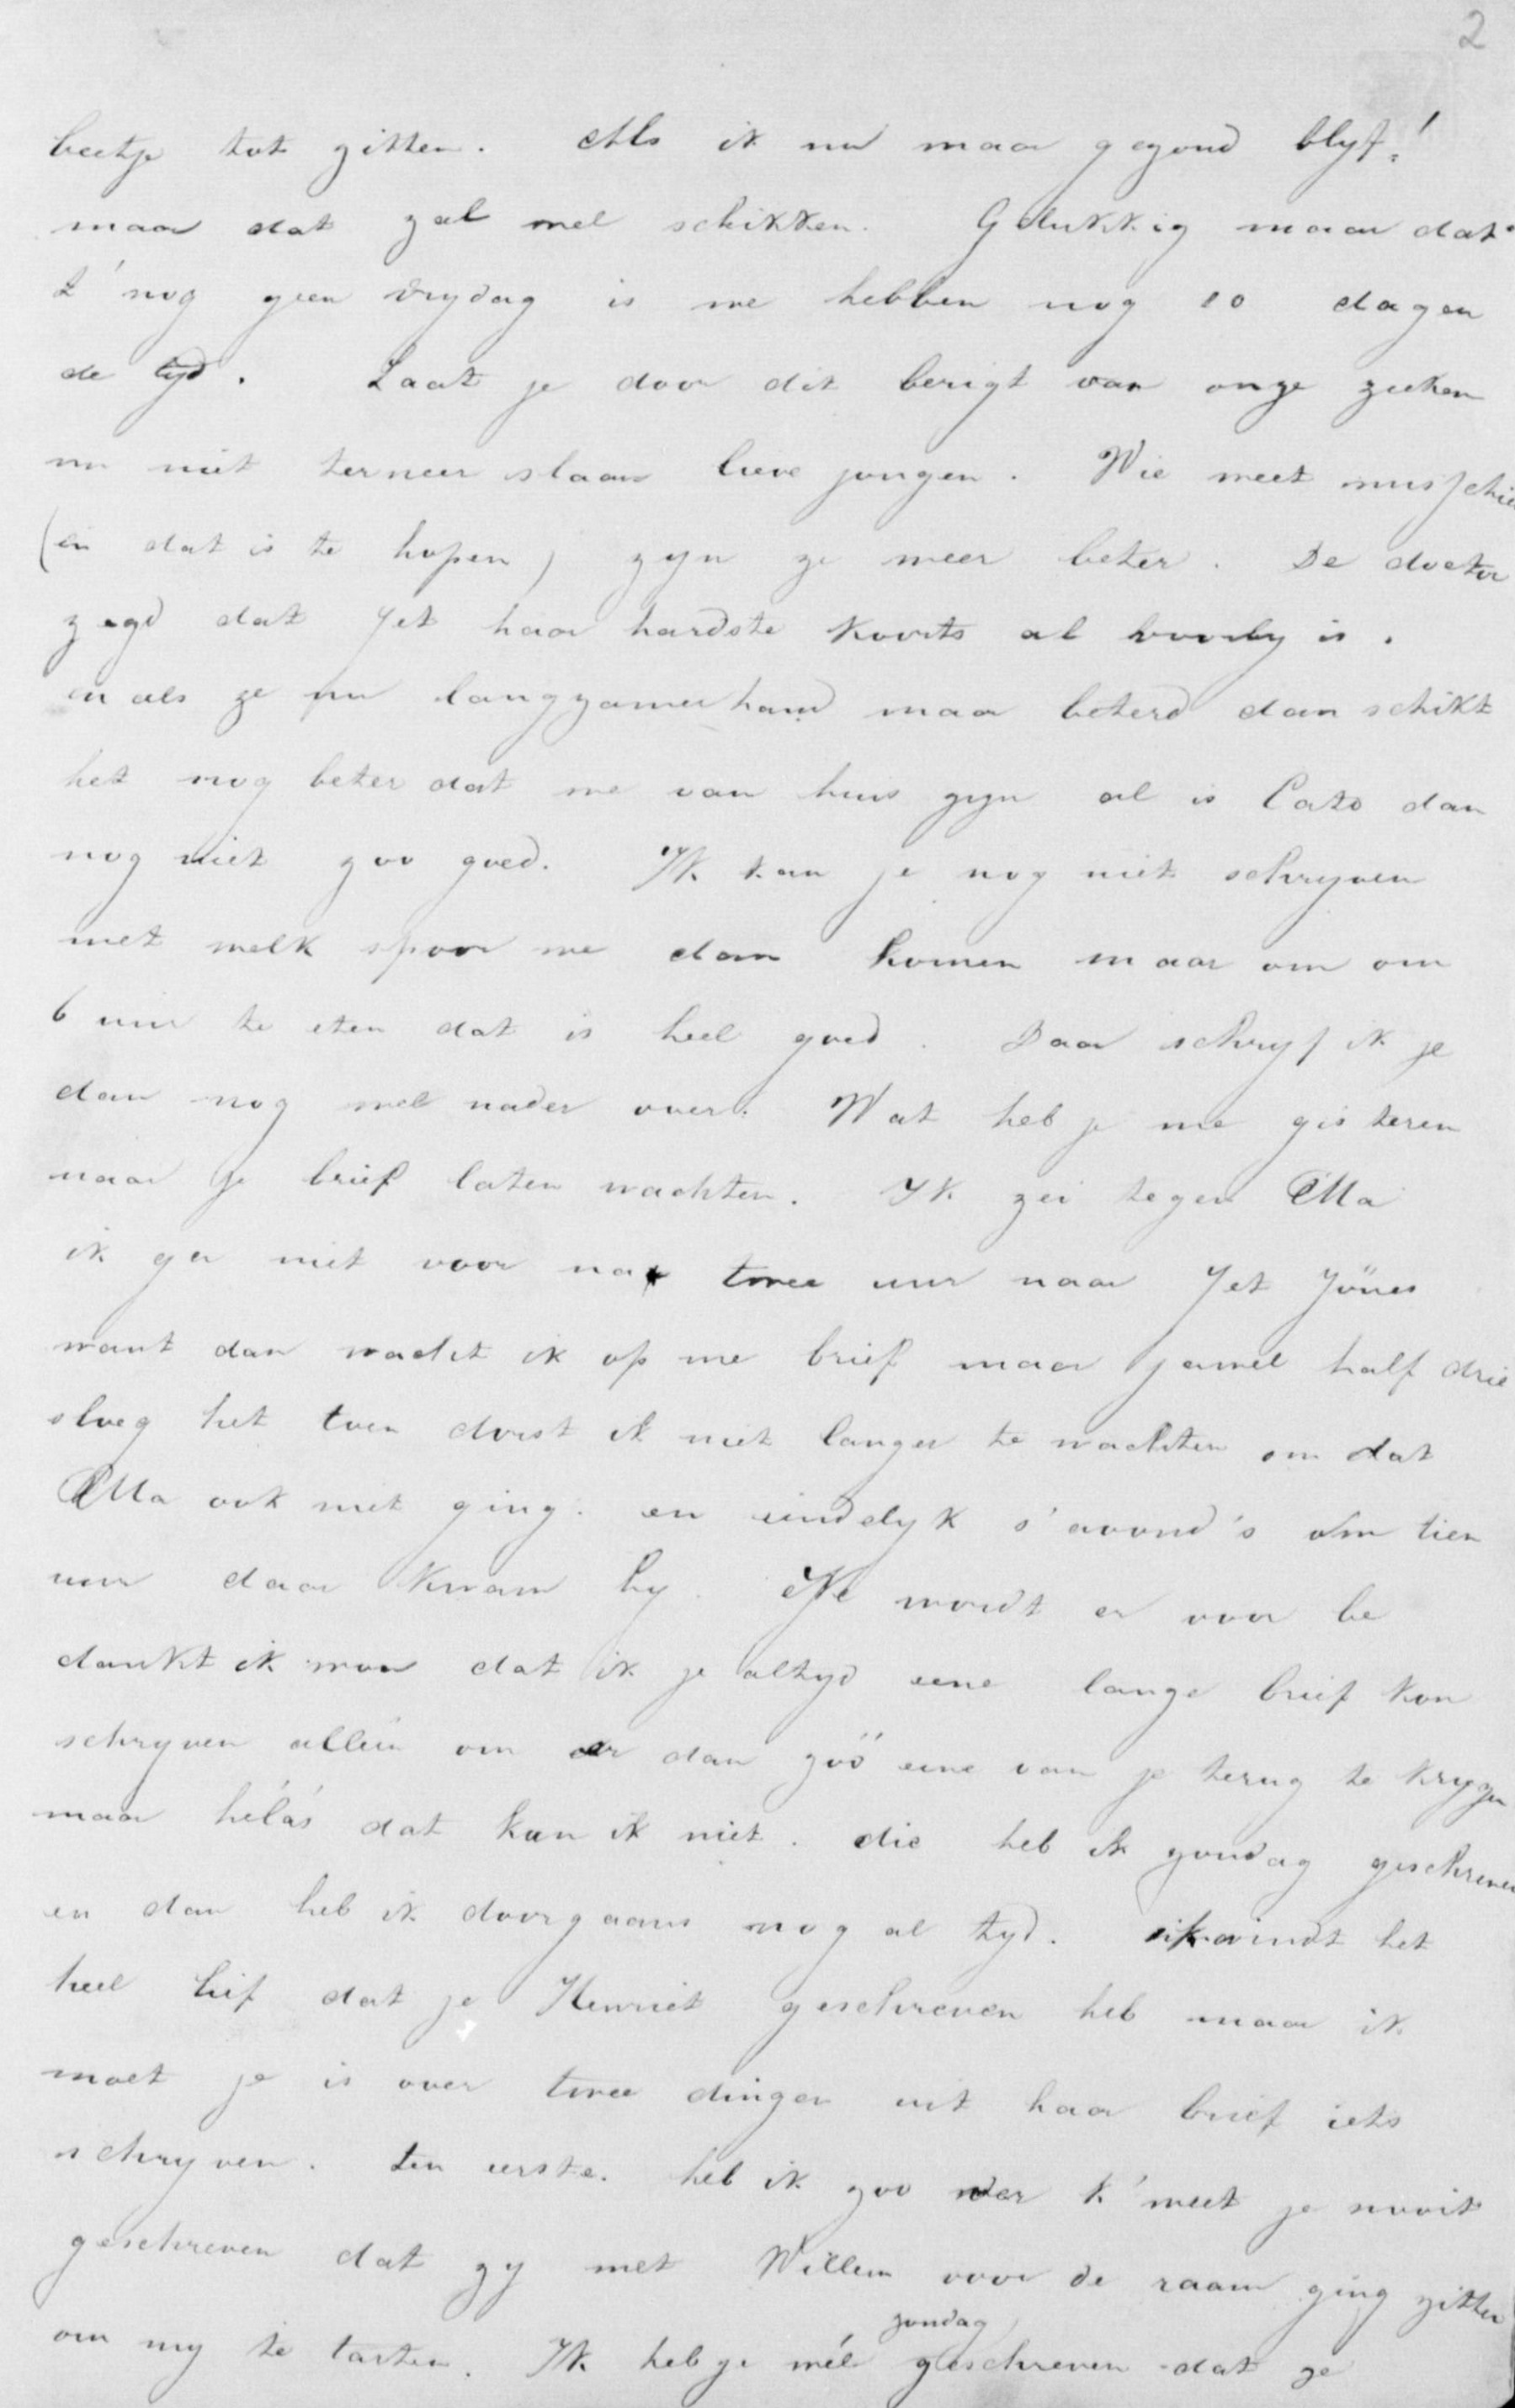 2
beetje tot zitten. Als ik nu maar gezond blyf!
maar dat zal wel schikken. Gelukkig maar dat
t' nog geen vrydag is we hebben nog 10 dagen
de tyd. Laat je door dit berigt van onze zieken
nu niet terneer slaan lieve jongen. Wie weet misschien
(en dat is te hopen) zyn ze weer beter. De doctor
zegd dat Jet haar hardste koorts al voorby is.
en als ze nu langzamerhand maar beterd dan schikt
het nog beter dat we van huis zyn al is Cato dan
nog niet zoo goed. Ik kan je nog niet schryven
met welk spoor we dan komen maar om om
6 uur te eten dat is heel goed. Daar schryf ik je
dan nog wel nader over. Wat heb je me gisteren
naar je brief laten wachten. Ik zei tegen Ma
ik ga niet voor na twee uur naar Jet Jönes
want dan wacht ik op me brief maar jawel half drie
sloeg het toen dorst ik niet langer te wachten om dat
Ma ook met ging. en eindelyk s'avond's om tien
uur daar kwam hy. Je wordt er voor be
dankt ik wou dat ik je altyd eene lange brief kon
schryven alleen om er dan zóó eene van je terug te krygen
maar hélás dat kan ik niet. die heb ik zondag geschreven
en dan heb ik doorgaans nog al tyd. ik vindt het
heel lief dat je Henriet geschreven heb maar ik
moet je is over twee dingen uit haar brief iets
schryven. ten eerste. heb ik zoo ver k' weet je nooit
geschreven dat gy met Willem voor de raam ging zitten
om my te tarten. Ik heb je wél geschreven dat ze
zondag